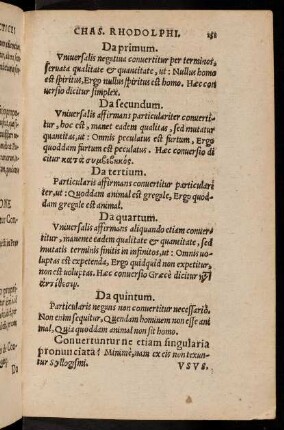 CHAS. RHODOLPHI. 151
Da primum.
Vniuersalis negatiua conuertitur per terminos,
seruata qualitate & quantitate, ut: Nullus homo
est spiritus, Ergo nullus spiritus est homo. Hæc con
uersio dicitur simplex.
Da secundum.
Vniuersalis affirmans particulariter conuerti-
tur, hoc est, manet eadem qualitas, sed mutatur
quantitas, ut: Omnis peculatus est furtum, Ergo
quoddam furtum est peculatus. Hæc conuersio di
citur κατὰ συμβεβηκός.
Da tertium.
Particularis affirmans conuertitur particulari
ter, ut: Quoddam animal est gregale, Ergo quod
dam gregale est animal.
Da quartum.
Vniuersalis affirmans aliquando etiam conuer-
titur, manente eadem qualitate & quantitate, sed
mutatis terminis finitis in infinitos, ut: Omnis uo-
luptas est expetenda, Ergo quidquid non expetitur,
non est uoluptas. Hæc conuersio Græcè dicitur
ἀντίθεσιμ.
Da quintum.
Particularis negans non conuertitur necessariò.
Non enim sequitur, Quendam hominem non esse ani
mal, Quia quoddam animal non sit homo.
Conuertuntur ne etiam singularia
pronunciata? Minimè, nam ex eis non texun-
tur Syllogismi.
VSVS.